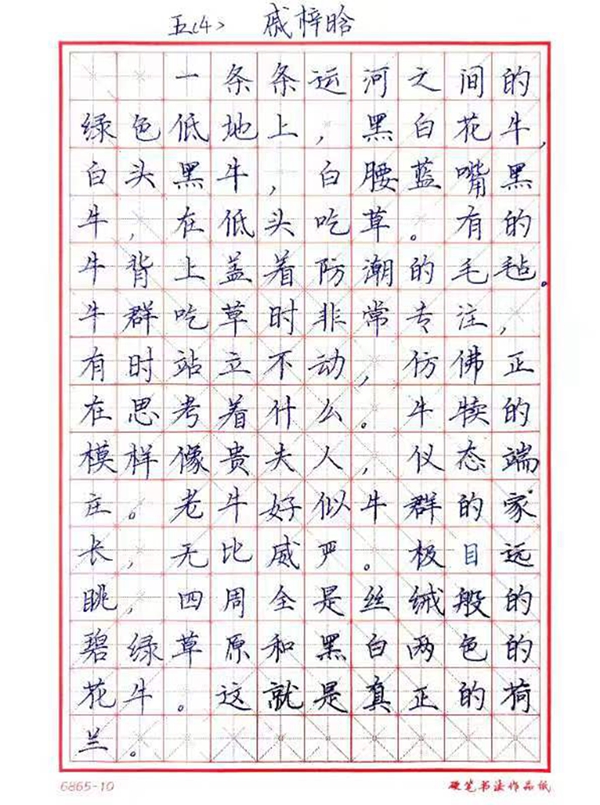 五(4) 戚梓晗
一条条运河之间的
绿色低地上，黑白花牛，
白头黑牛，白腰蓝嘴黑
牛，在低头吃草。有的
牛背上盖着防潮的毛毡。
牛群吃草时非常专注，
有时站立不动，仿佛正
在思考着什么。牛犊的
模样像贵夫人，仪态端
庄。老牛好似牛群的家
长，无比威严。极目远
眺，四周全是丝绒般的
碧绿草原和黑白两色的
花牛。这就是真正的荷
兰。
6865-10 硬笔书法作品纸